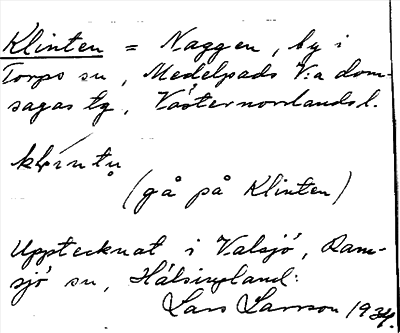 Klinten = Naggen, by i
Torps sn, Medelpads V:a dom-
sagas tg, Västernorrlands l.
klíntu̥
(gå på Klinten)
Upptecknat i Valsjö, Ram-
sjö sn, Hälsingland:
Lars Larsson 1934.